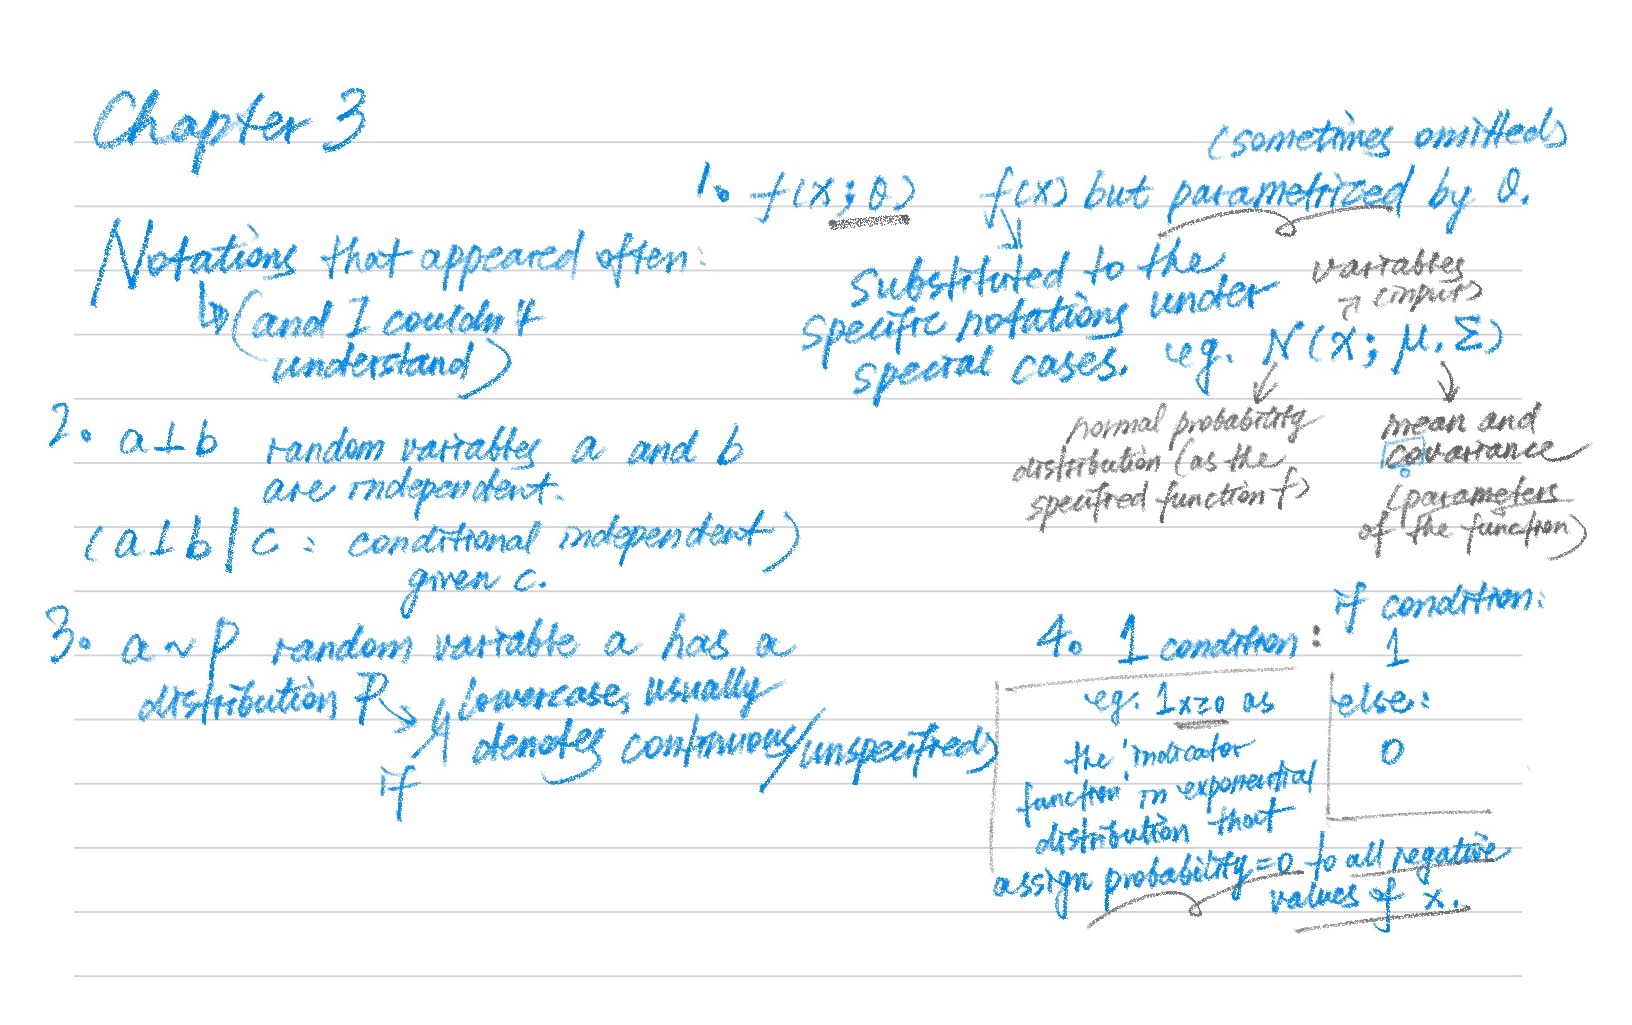 Chapter 3
Notations that appeared often:
(and I couldn't
understand)
(sometimes omitted)
1. f(x; θ) f(x) but parametrized by θ.
substituted to the
specific notations under
special cases. eg. N(x; μ, Σ)
variables
(inputs)
normal probability
distribution (as the
specified function f)
mean and
covariance
(parameters
of the function)
2. a⊥b random variables a and b
are independent.
(a⊥b|c : conditional independent)
given c.
3. a ~ P random variable a has a
distribution P
if lowercases, usually
denotes continuous/unspecified)
4. 1 condition :
if condition:
1
else:
0
eg. 1x≥0 as
the 'indicator
function' in exponential
distribution that
assign probability=0 to all negative
values of x.